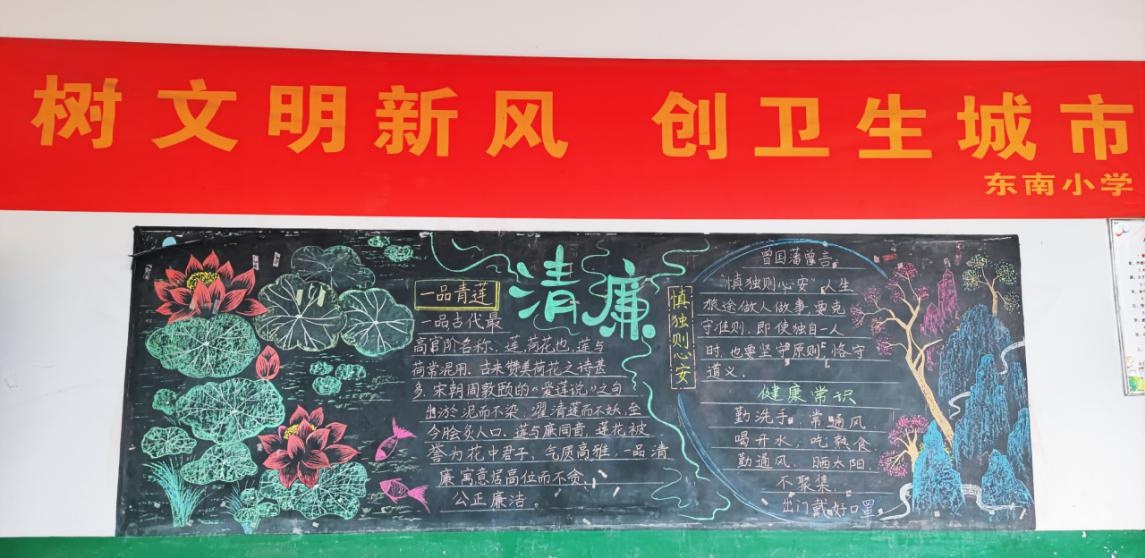 树文明新风 创卫生城市
东南小学
清廉
一品青莲
一品古代最
高官阶名称、莲,荷花也,莲与
荷常混用。古来赞美荷花之诗甚
多,宋朝周敦颐的“爱莲说”之句
出淤泥而不染,濯清莲而不妖,至
今脍炙人口。莲与廉同音,莲花被
誉为花中君子,气质高雅,一品清
廉寓意居高位而不贪,
公正廉洁。
慎独则心安
曾国藩曾言
慎独则心安 人生
旅途做人做事,要克
守准则,即使独自一人
时,也要坚守原则,恪守
道义。
健康常识
勤洗手,常通风
喝开水,吃熟食
勤通风,晒太阳
不聚集,
出门戴好口罩